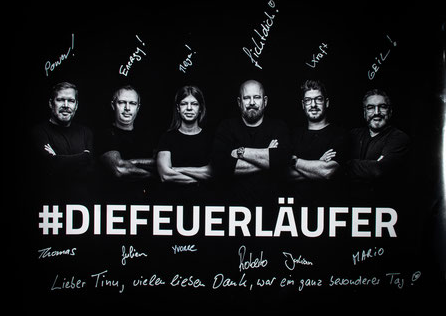 Power! Energy! Mega! fühl dich Kraft GEIL!
#DIEFEUERLÄUFER
Thomas Julien Yvonne Roberto Julian MARIO
Lieber Timm, vielen lieben Dank, war ein ganz besonderer Tag!